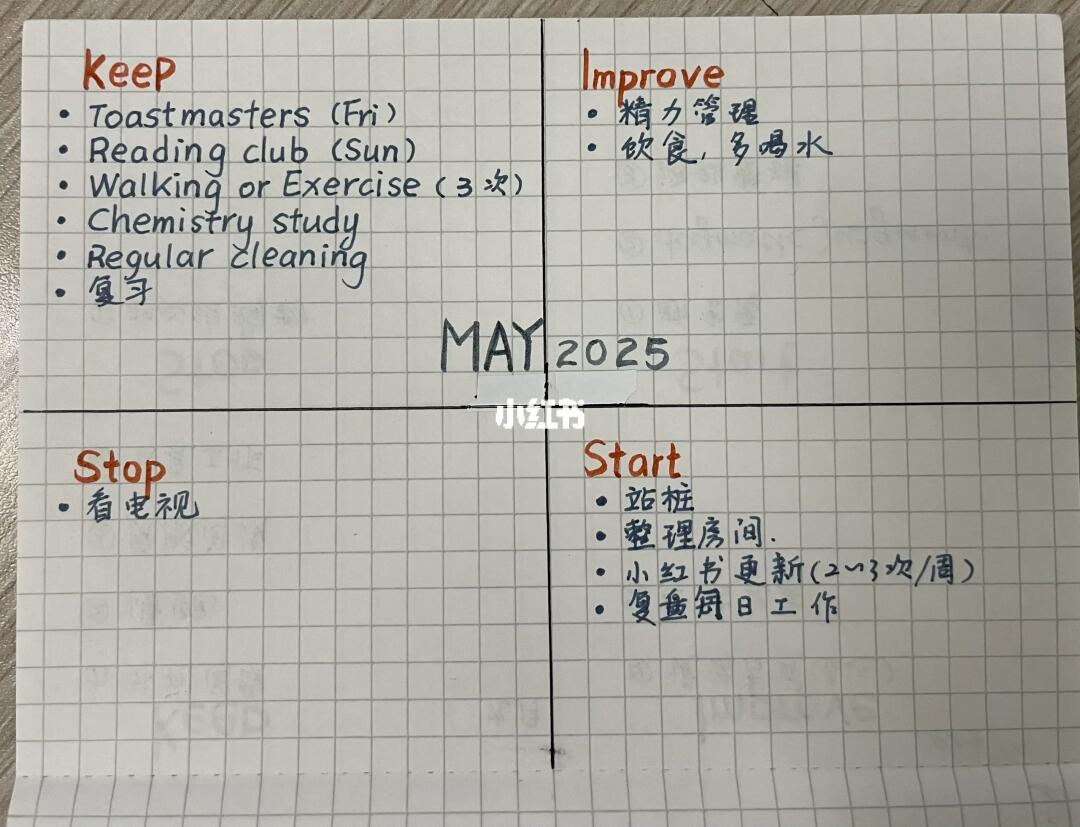 Keep
• Toastmasters (Fri)
• Reading club (Sun)
• Walking or Exercise (3次)
• Chemistry study
• Regular cleaning
• 复习
Improve
• 精力管理
• 饮食,多喝水
MAY 2025
小红书
Stop
• 看电视
Start
• 站桩
• 整理房间.
• 小红书更新(2~3次/周)
• 复盘每日工作